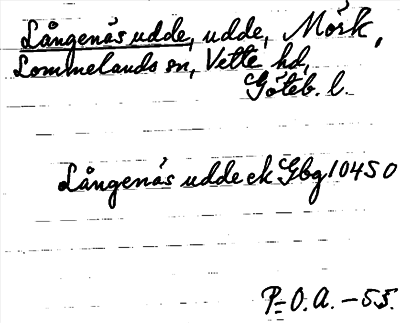 Långenäs udde, udde, Mörk,
Lommelands sn, Vette hd,
Göteb. l.
Långenäs udde ek Gbg 10450
P=O.A. – 55.